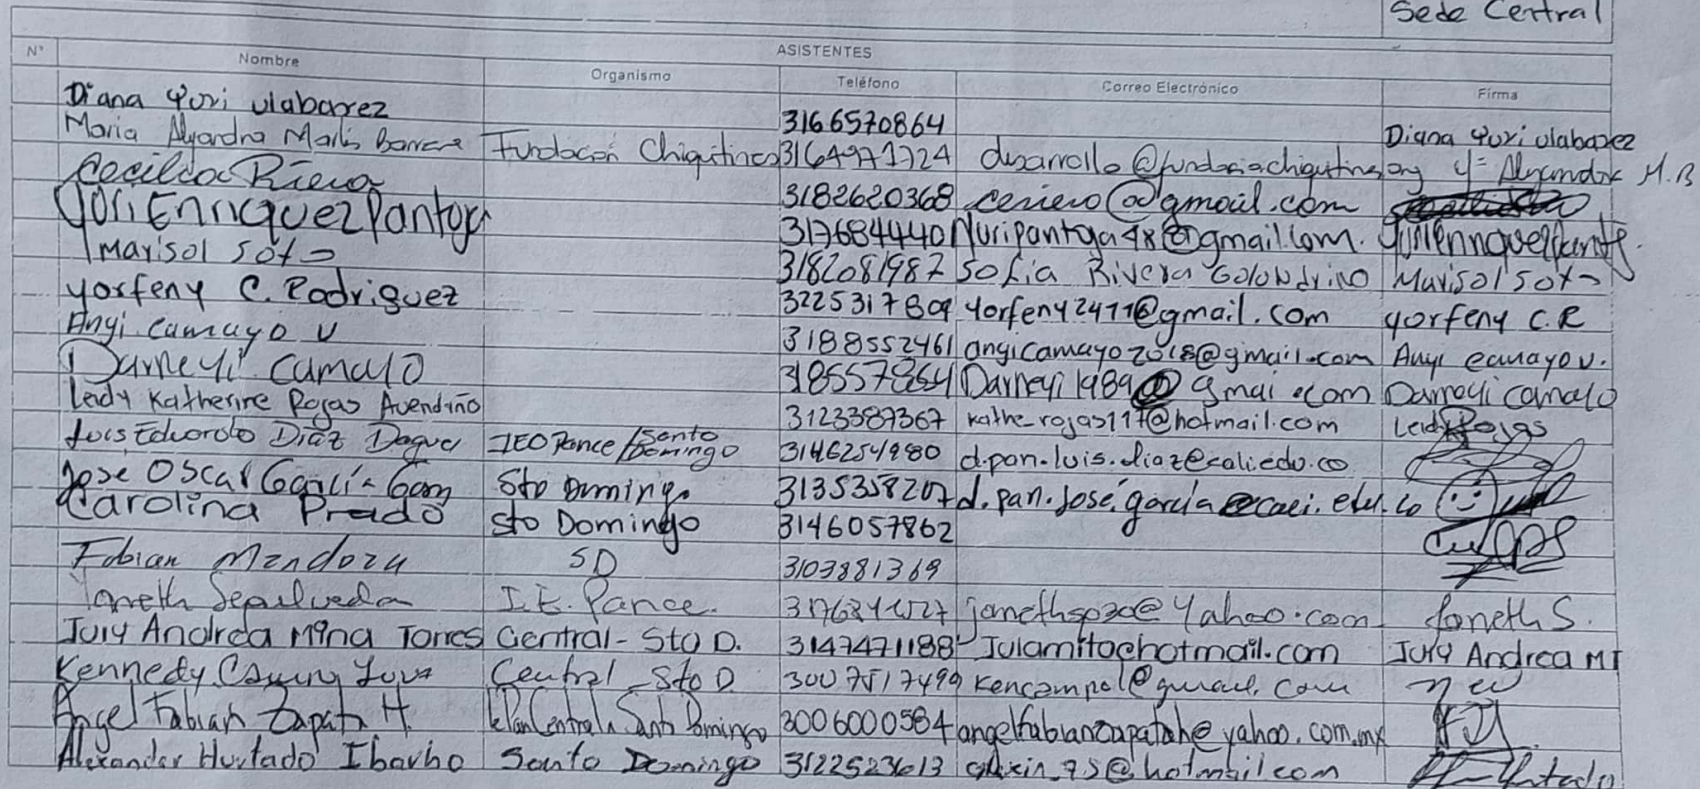 Sede Central
ASISTENTES
N° Nombre Organismo Teléfono Correo Electrónico Firma
Diana Yuri ulabarez 3166570864 Diana Yuri ulabarez
Maria Alejandra Marlis Barrera Fundación Chiquitines 3164971724 desarrollo@fundaciachiquitines.org Alejandra M.B
Cecilia Riera 3182620368 ceriero@gmail.com
Yuri Enriquez Pantoja 3176844401 Yuripantoja48@gmail.com.
Marisol Soto 3182081987 Sofia Rivera Golondrino Marisol Soto
yorfeny C. Rodriguez 3225317809 yorfeny2411@gmail.com yorfeny C.R
Anyi Camayo V 3188552461 angicamayo2018@gmail.com Anyi camayo v.
Darneyi Camayo 318557854 Darneyi1989@gmai.com Darneyi camayo
Leidy Katherine Rojas Avendaño 3123387367 kathe_rojas117@hotmail.com Leidy Rojas
Luis Eduardo Diaz Dagua IEO Pance/Santo Domingo 3146254980 d.pan.luis.diaz@cali.edu.co
Jose Oscar Garcí­a Sto Domingo 3135358207 d.pan.jose.garcia@cali.edu.co
Carolina Prado Sto Domingo 3146057862
Fabian Mendoza SD 3103881369
Janeth Sepulveda I.E. Pance. janethsp30@yahoo.com Janeth S.
July Andrea Mina Torres Central - Sto D. 3147471188 Julamito@hotmail.com July Andrea MT
Kennedy Central - Sto D 3007517499 kencampol@gmail.com
Angel Fabian Zapata H. Central Santo Domingo 3006000584 angelfabianzapatah@yahoo.com.mx
Alexander Hurtado Ibarbo Santo Domingo 3122523613 @hotmail.com Hurtado